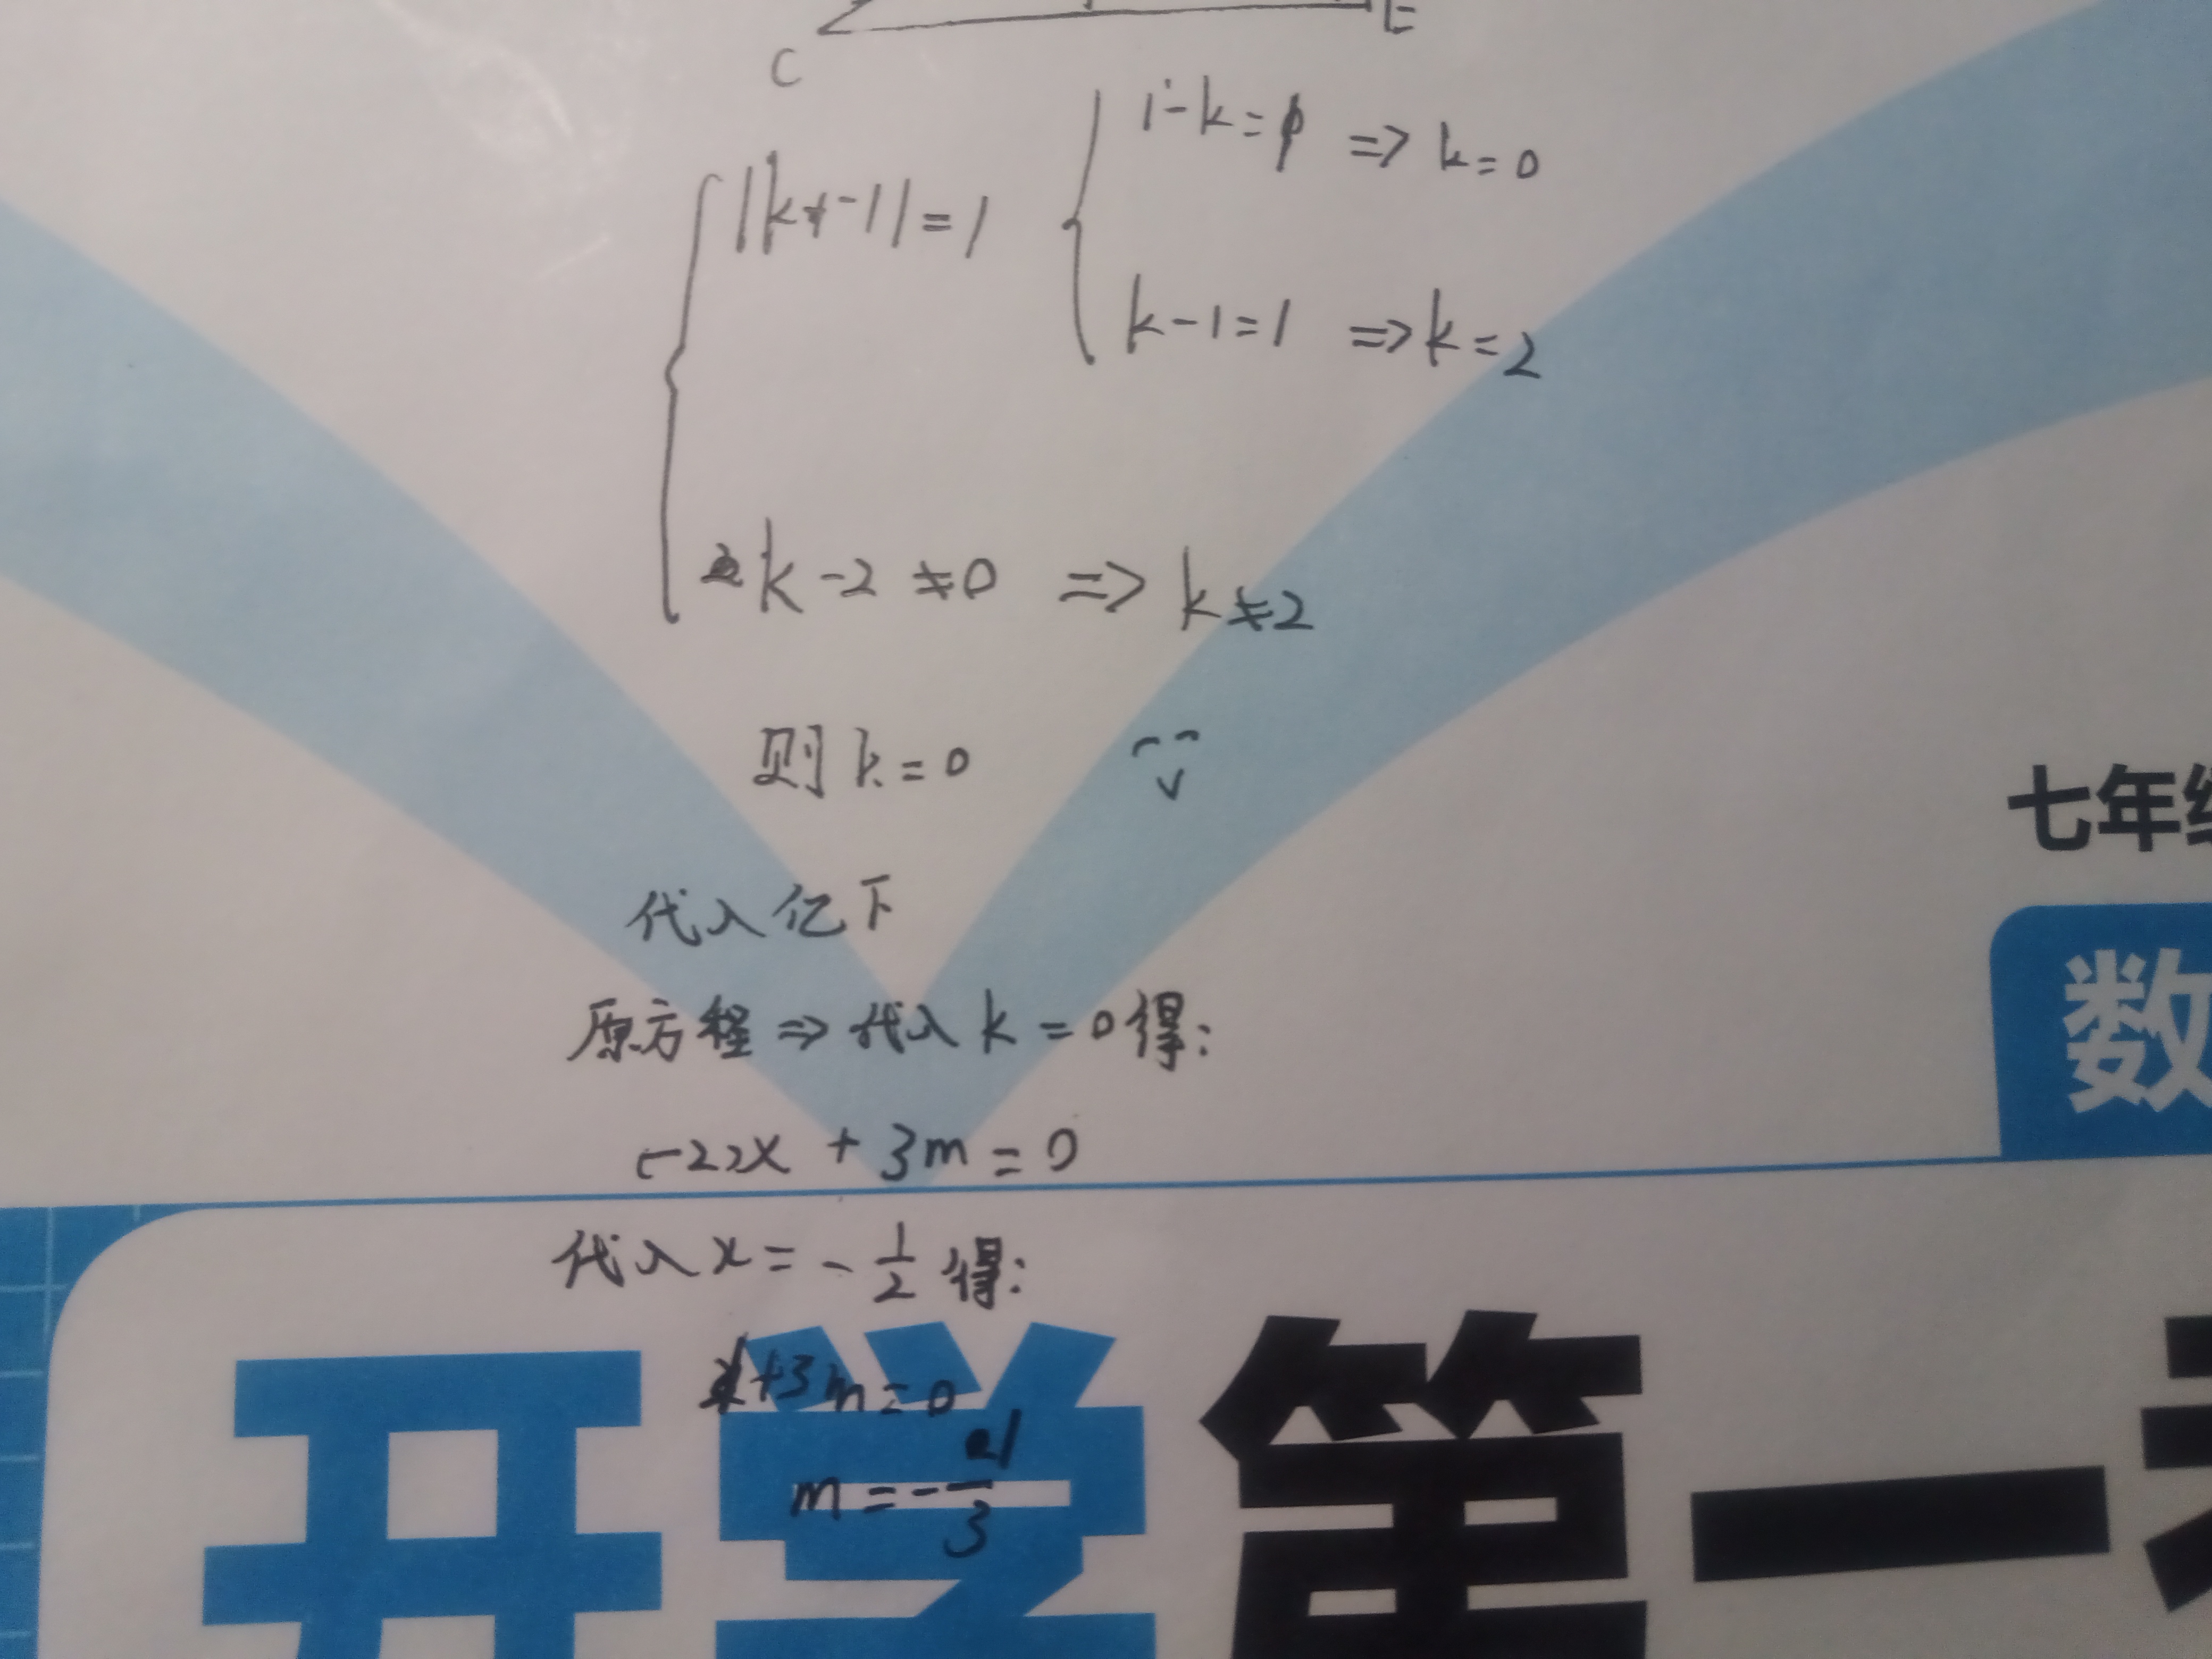 C E
1-k=1 => k=0
|k-1|=1
k-1=1 => k=2
k-2≠0 => k≠2
则 k=0
代入亿下
原方程 => 代入 k=0得:
(-2)x + 3m = 0
代入 x = -1/2 得:
1+3m=0
m = -1/3
七年
数
开学第一